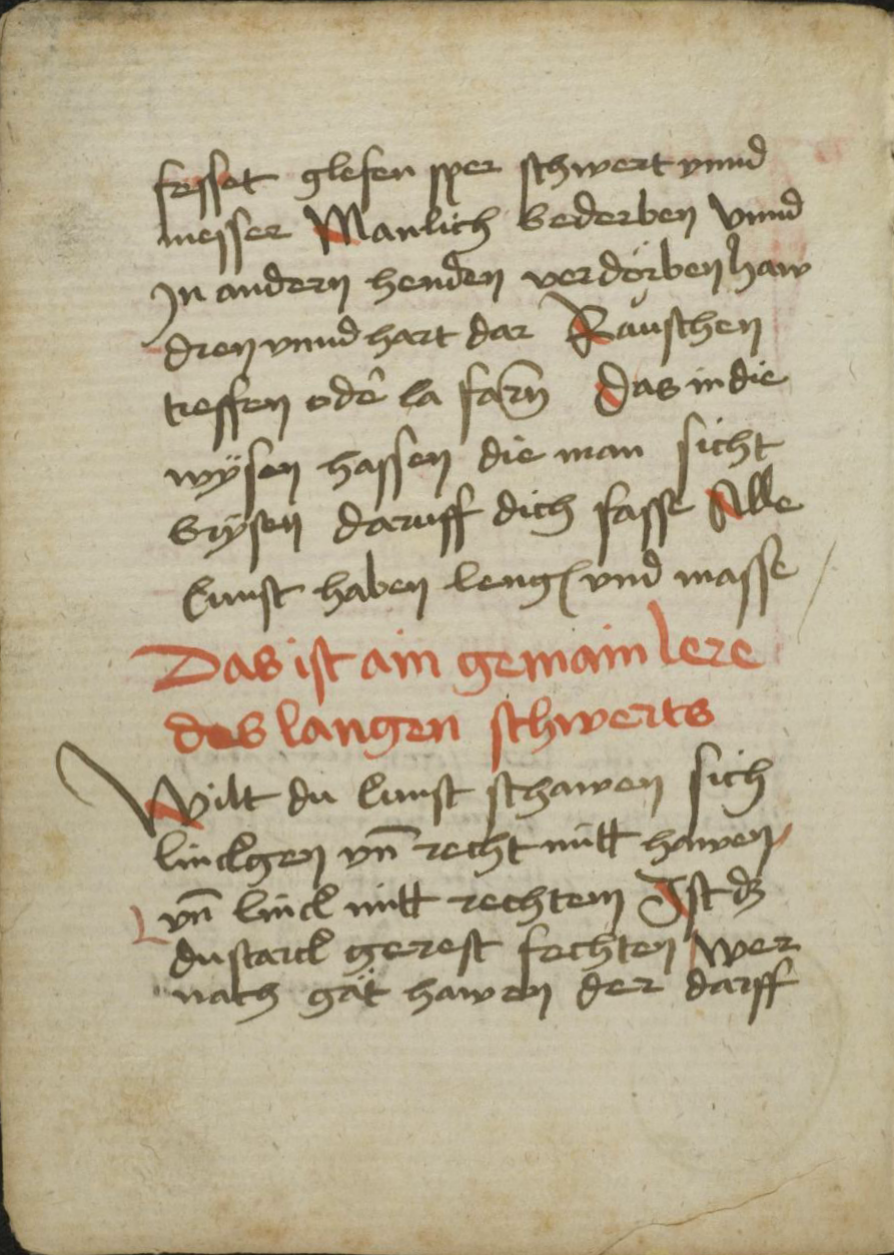 fesset glefen sper schwert vnnd
messer Manlich bederben Vnnd
In andern henden verdorben haw
dreyn vnnd hart dar Rauschen
treffen oder la farn Das in die
wÿsen hassen die man sicht
brÿsen daruff dich fasse Alle
kunst haben leng vnd masse
Das ist ain gemain lere
des langen schwerts
Wilt du kunst schawen sich
linckgen vn̄ recht mitt hawen
vn̄ linck mitt rechtem Ist dz
du starck gerest fechten Wer
nach gät hawen der darff